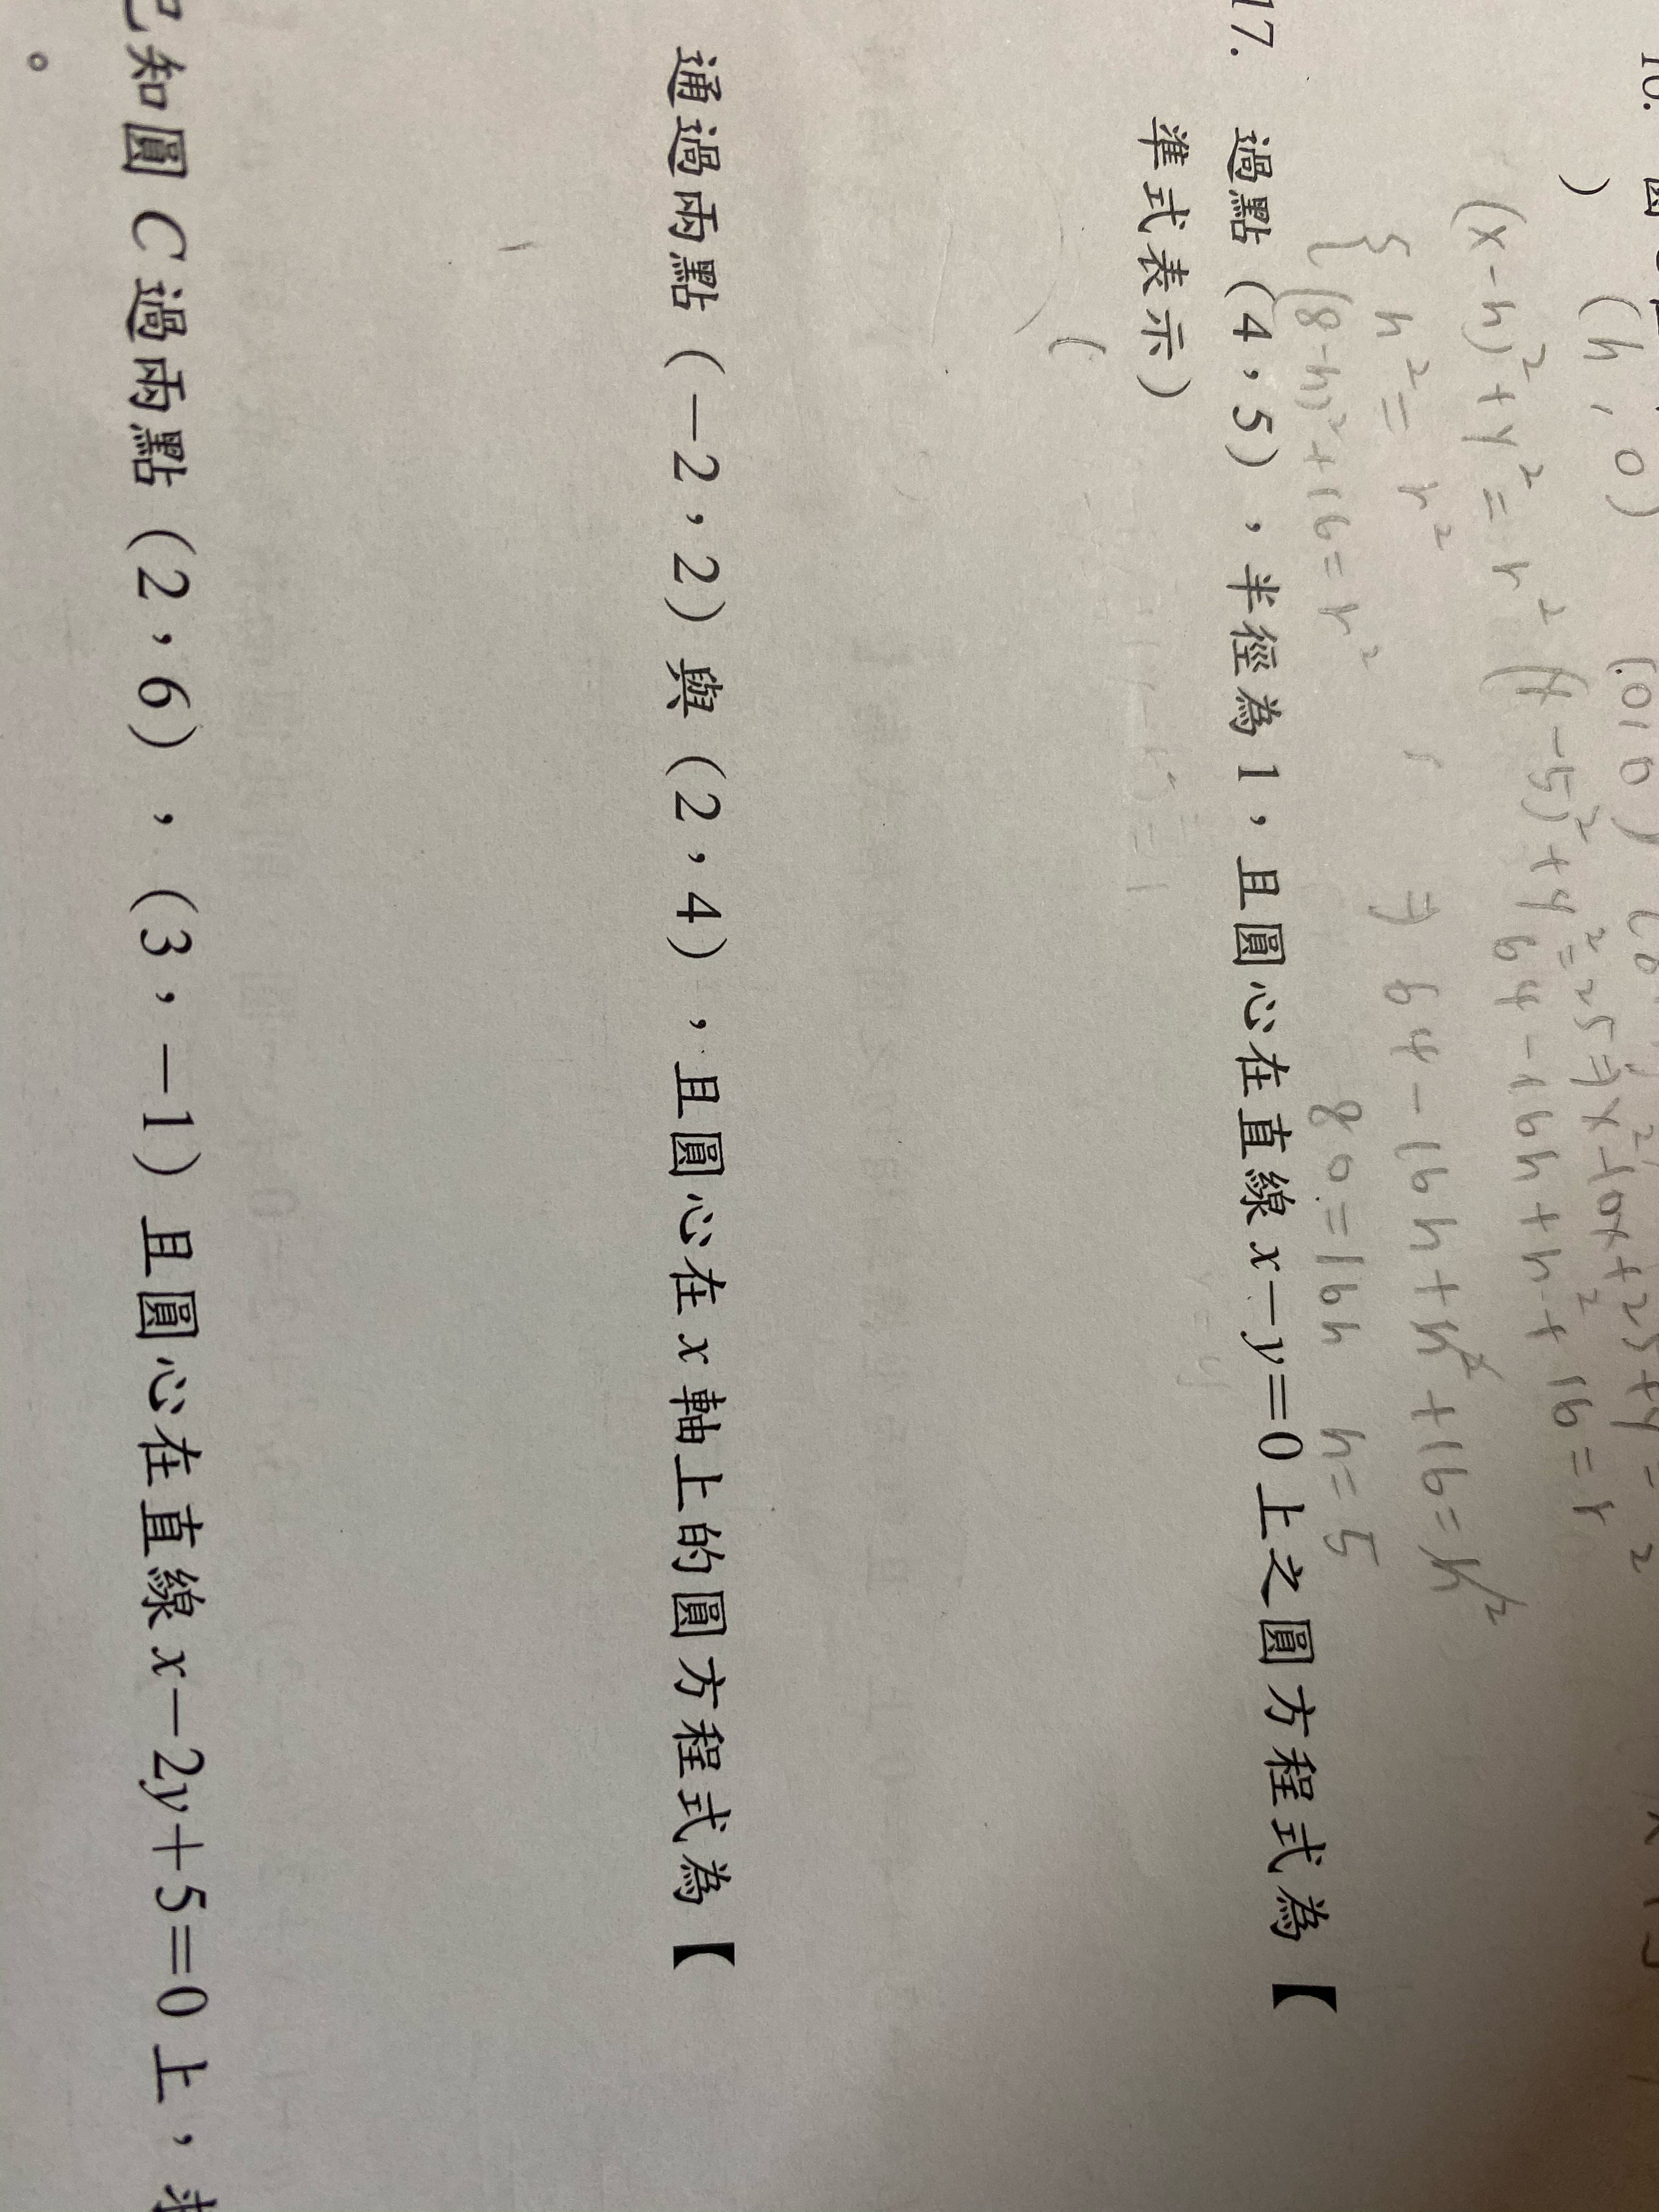 (h, 0)
(x-h)²+y²=r² (x-5)²+y²=25⇒x²-10x+25+y²
64-16h+h²+16=r
{h²=r²
(8-h)²+16=r²
⇒64-16h+h²+16=h²
80=16h h=5
17. 過點(4,5),半徑為1,且圓心在直線x-y=0上之圓方程式為【
準式表示)
通過兩點(-2,2)與(2,4),且圓心在x軸上的圓方程式為【
已知圓C過兩點(2,6),(3,-1)且圓心在直線x-2y+5=0上,求
。